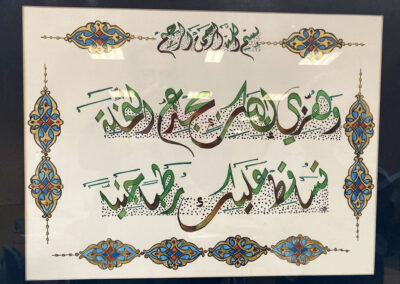 بسم الله الرحمن الرحيم
وهزي إليك بجذع النخلة
تساقط عليك رطبا جنيا